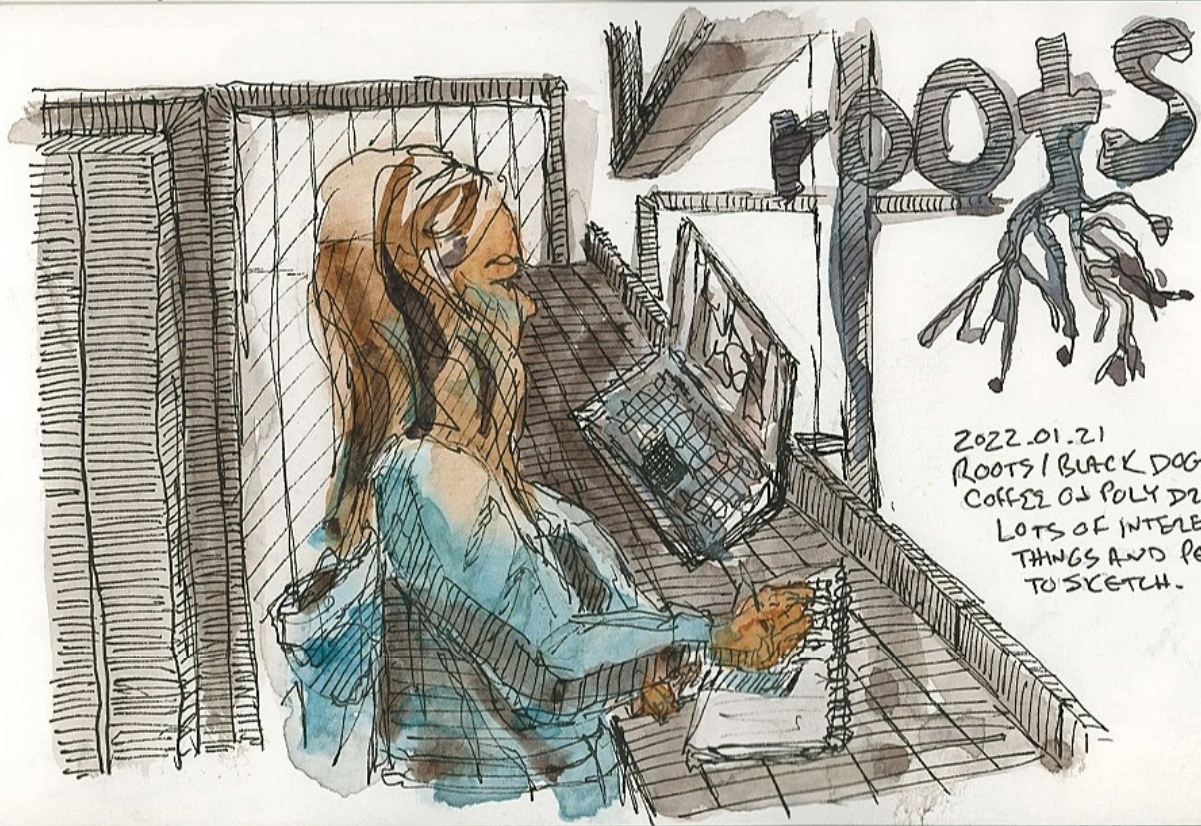 roots
2022.01.21
ROOTS / BLACK DOG
COFFEE ON POLY DR
LOTS OF
THINGS AND
TO SKETCH.